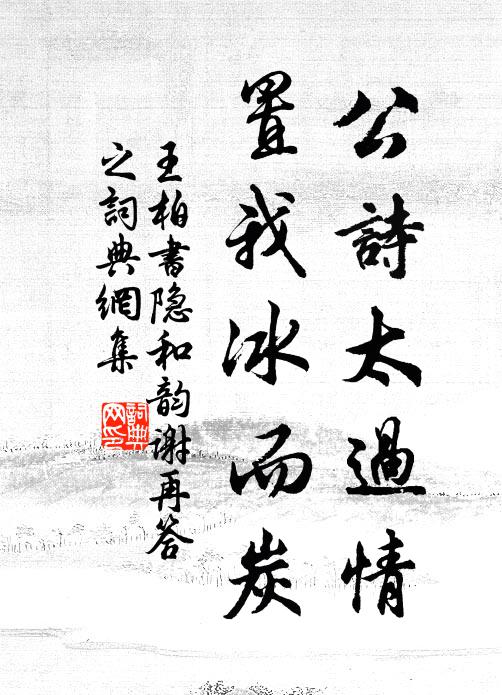 公詩太過情
置我冰而炭
王柏書隐和韵谢再答
之詞典網集
詞典
网印